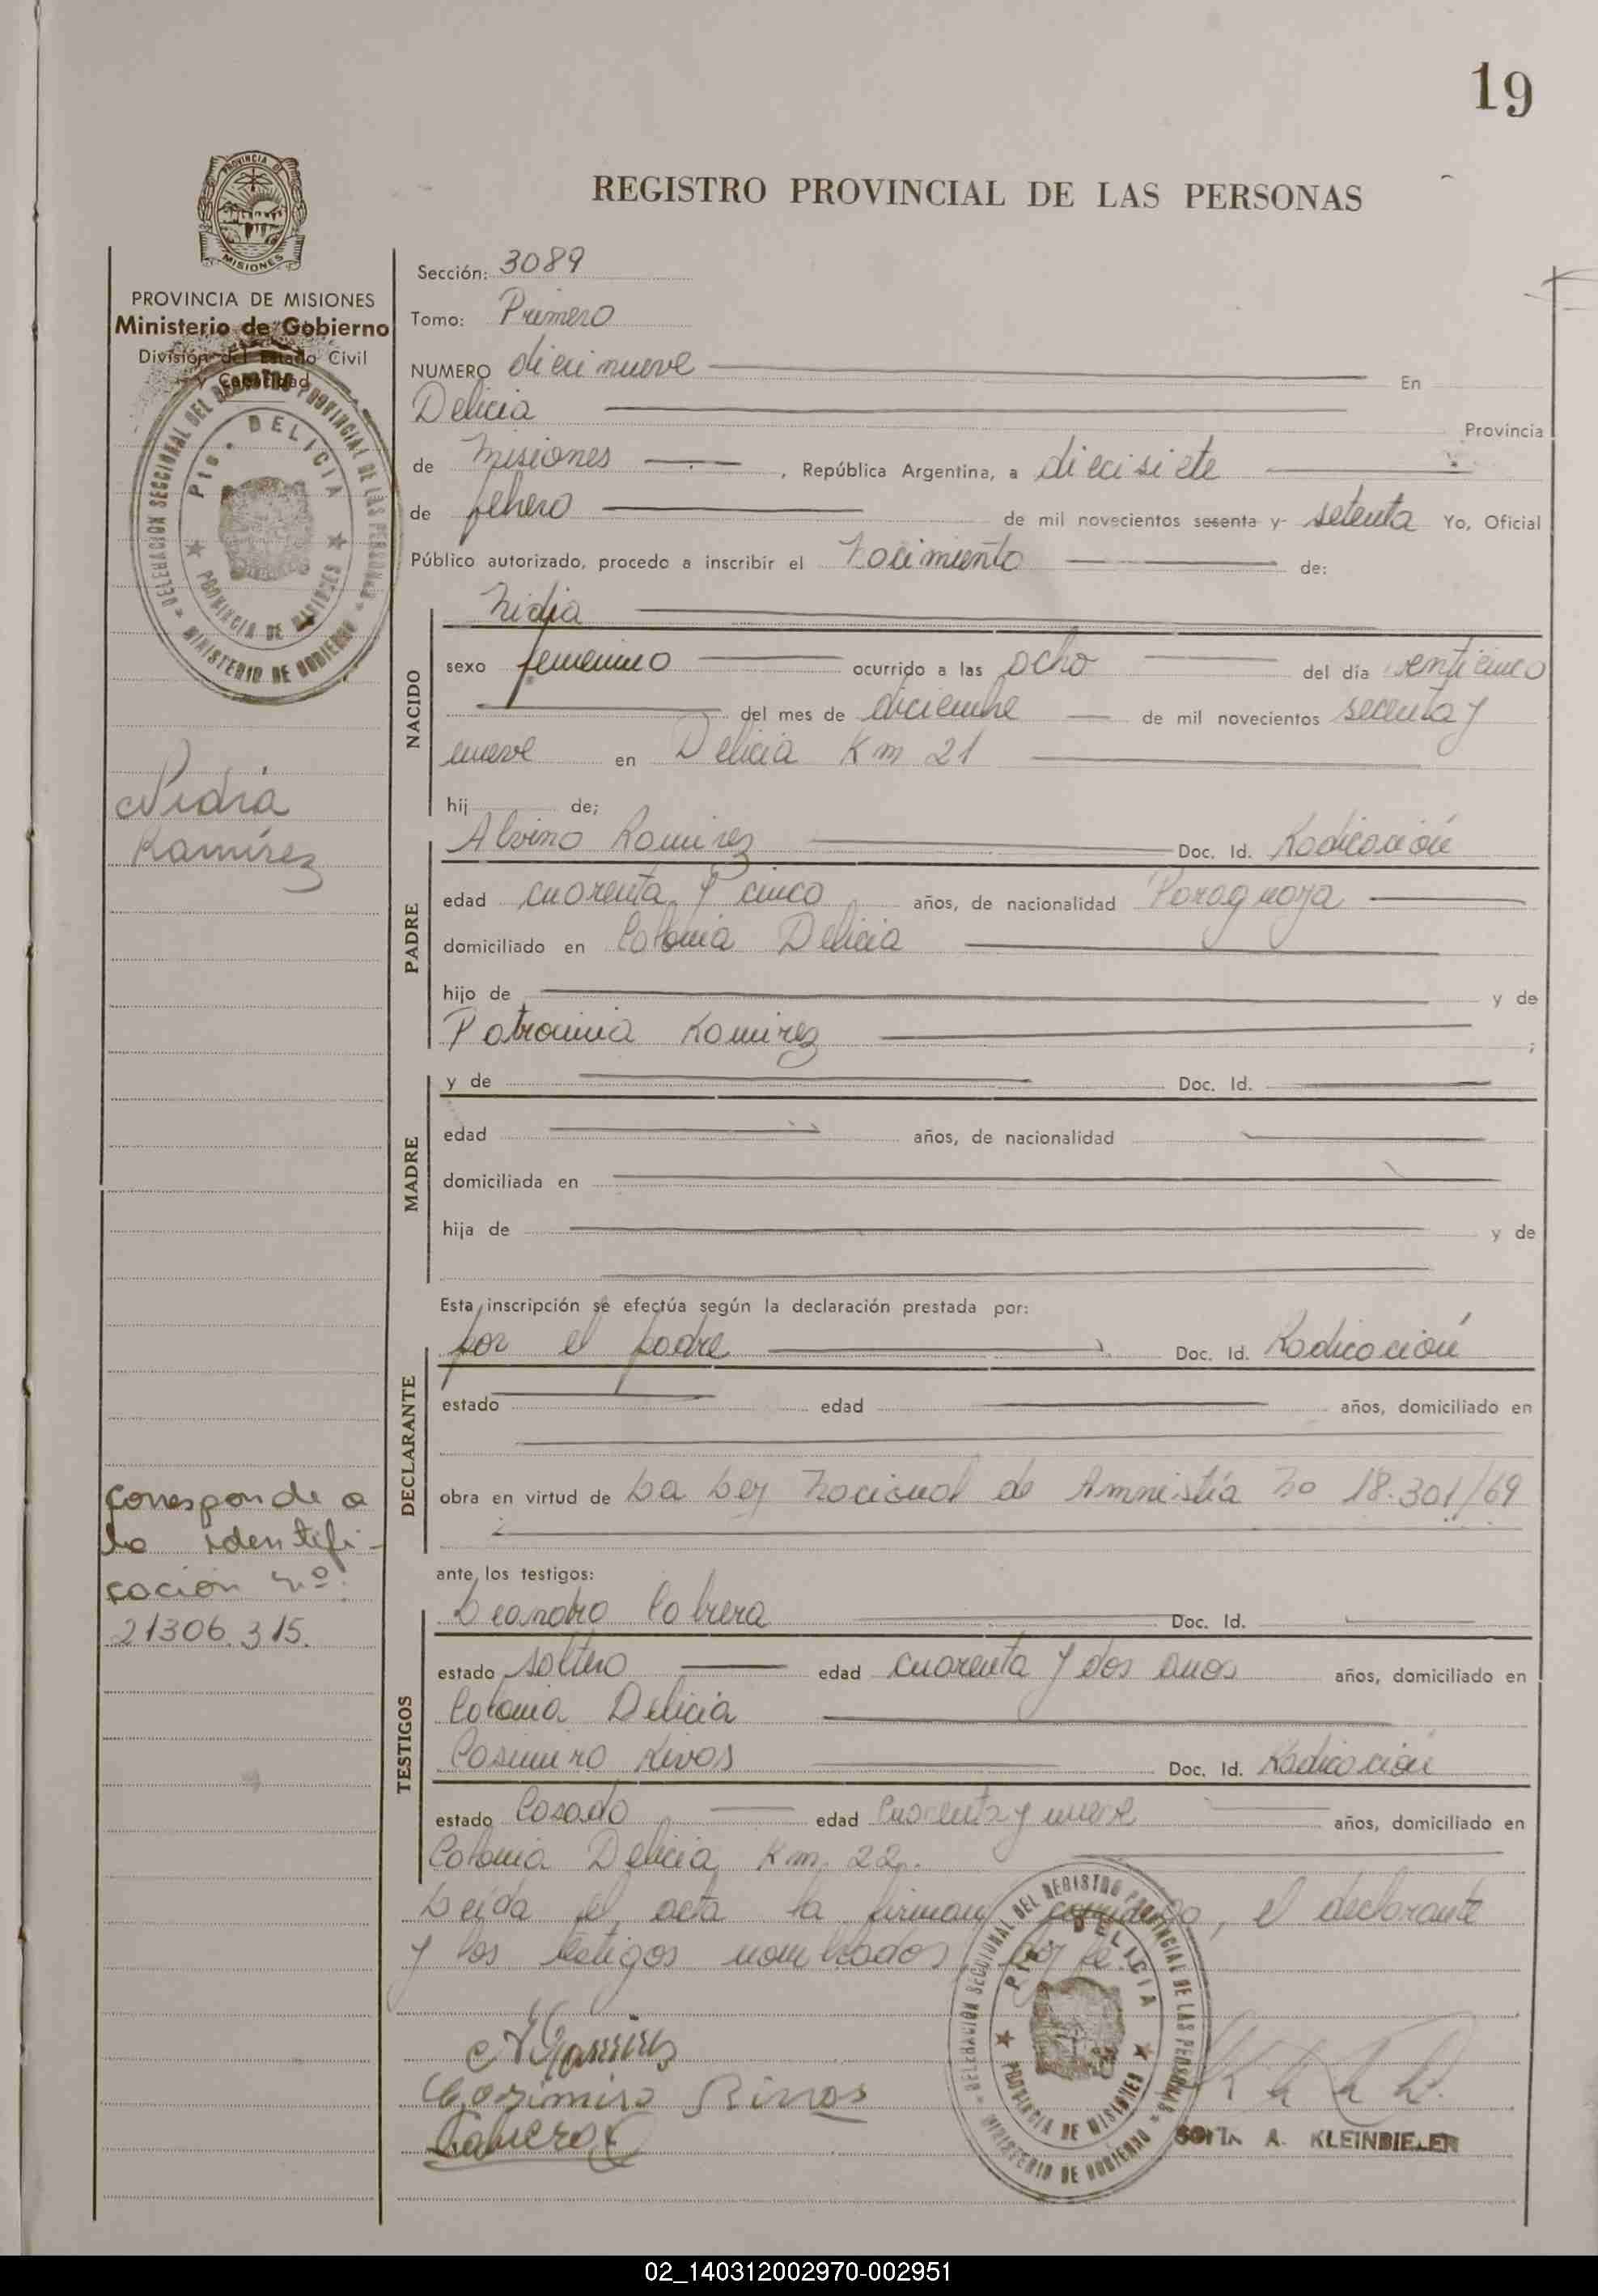 19
REGISTRO PROVINCIAL DE LAS PERSONAS
PROVINCIA DE MISIONES
PROVINCIA DE MISIONES
Ministerio de Gobierno
División del Estado Civil
y Capacidad
DELEGACION SECCIONAL DEL REGISTRO PROVINCIAL DE LAS PERSONAS
Pto. DELICIA
PROVINCIA DE MISIONES
MINISTERIO DE GOBIERNO
Nidia
Ramírez
Corresponde a
la identifi-
cación nº
21306.315.
Sección: 3089
Tomo: Primero
NUMERO diecinueve En
Delicia Provincia
de Misiones , República Argentina, a diecisiete
de febrero de mil novecientos sesenta y setenta Yo, Oficial
Público autorizado, procedo a inscribir el Nacimiento de:
NACIDO
Nidia
sexo femenino ocurrido a las ocho del día venticinco
del mes de diciembre de mil novecientos secenta y
nueve en Delicia Km 21
hij de;
PADRE
Alvino Ramirez Doc. Id. Radicación
edad cuarenta y cinco años, de nacionalidad Paraguaya
domiciliado en Colonia Delicia
hijo de y de
Patrocinia Ramirez ;
MADRE
y de Doc. Id.
edad años, de nacionalidad
domiciliada en
hija de y de
Esta inscripción se efectúa según la declaración prestada por:
DECLARANTE
por el padre Doc. Id. Radicación
estado edad años, domiciliado en
obra en virtud de La Ley Nacional de Amnistía No 18.301/69
ante los testigos:
TESTIGOS
Leandro Cabrera Doc. Id.
estado soltero edad cuarenta y dos anos años, domiciliado en
Colonia Delicia
Casimiro Rivas Doc. Id. Radicación
estado Casado edad Cuarenta y nueve años, domiciliado en
Colonia Delicia Km. 22.
Leída el acta la firman conmigo, el declarante
y los testigos nombrados, doy fe.
A Ramires
Casimiro Rivas
Cabrera
DELEGACION SECCIONAL DEL REGISTRO PROVINCIAL DE LAS PERSONAS
Pto. DELICIA
PROVINCIA DE MISIONES
MINISTERIO DE GOBIERNO
A. KLEINBIELEN
02_140312002970-002951